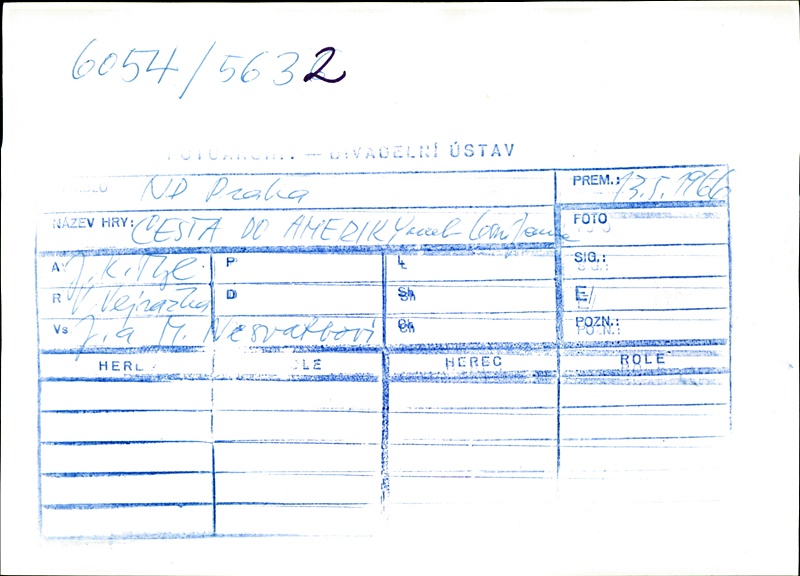 6054/5632
FOTOARCHIV — DIVADELNÍ ÚSTAV
ND Praha PREM.: 13.5.1966
NÁZEV HRY: CESTA DO AMERIKY
FOTO
A J. K. Tyl P L SIG.:
R V. Vejražka D Sh E/
Vs J. a M. Nesvatbovi Ch POZN.:
HEREC ROLE HEREC ROLE